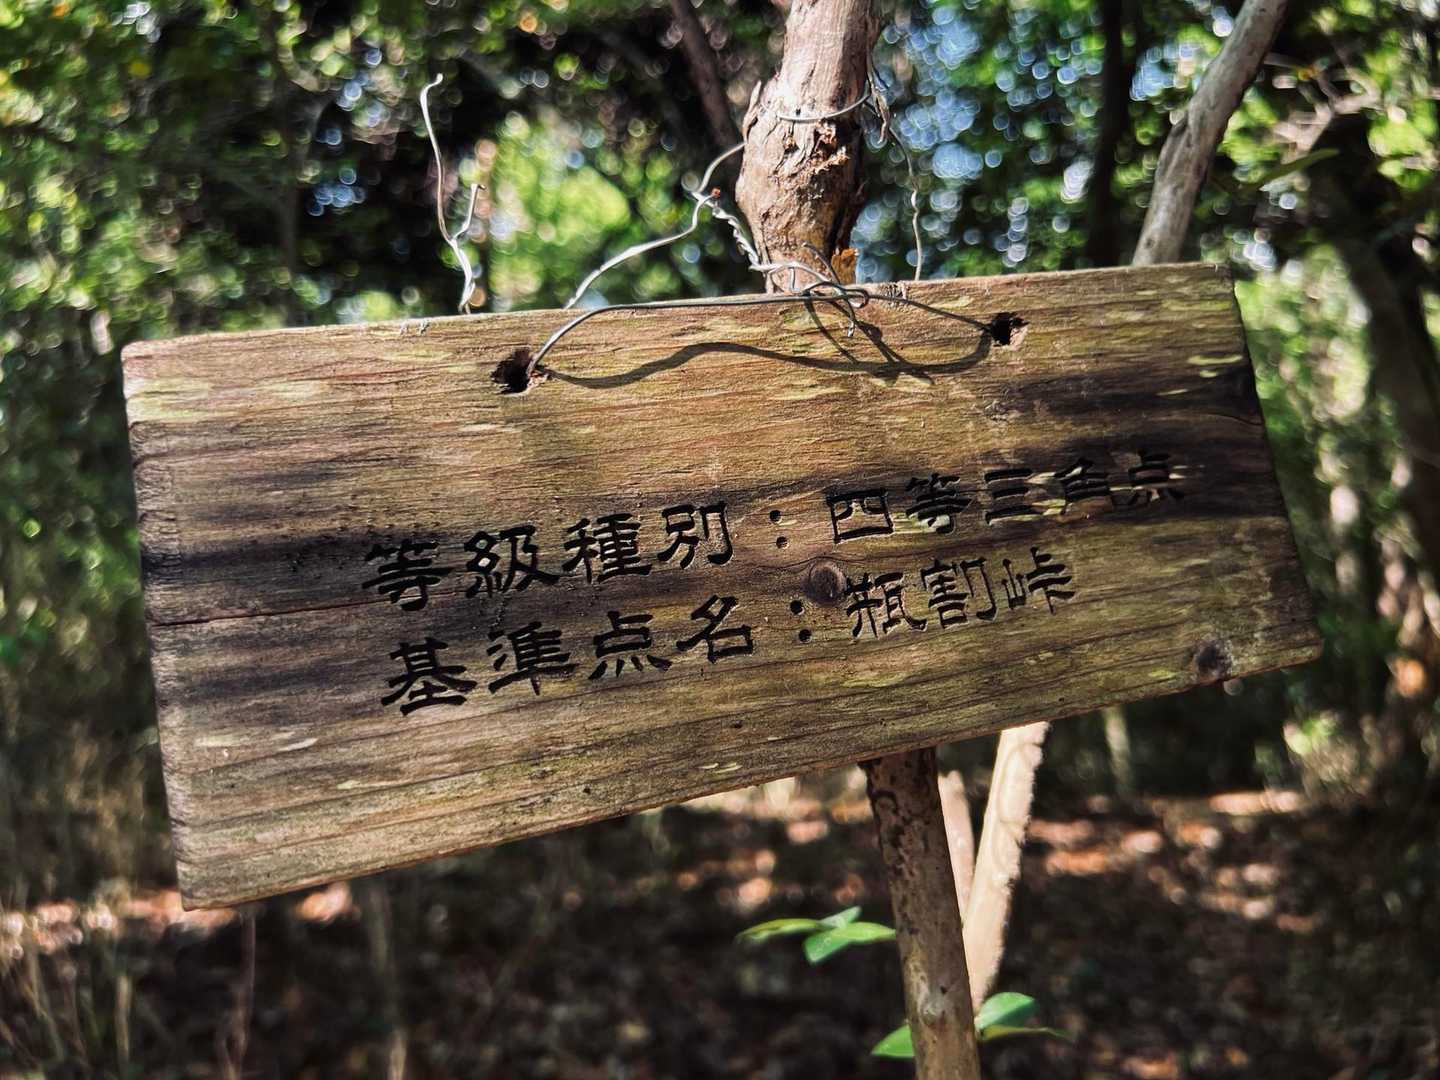 等級種別：四等三角点
基準点名：瓶割峠